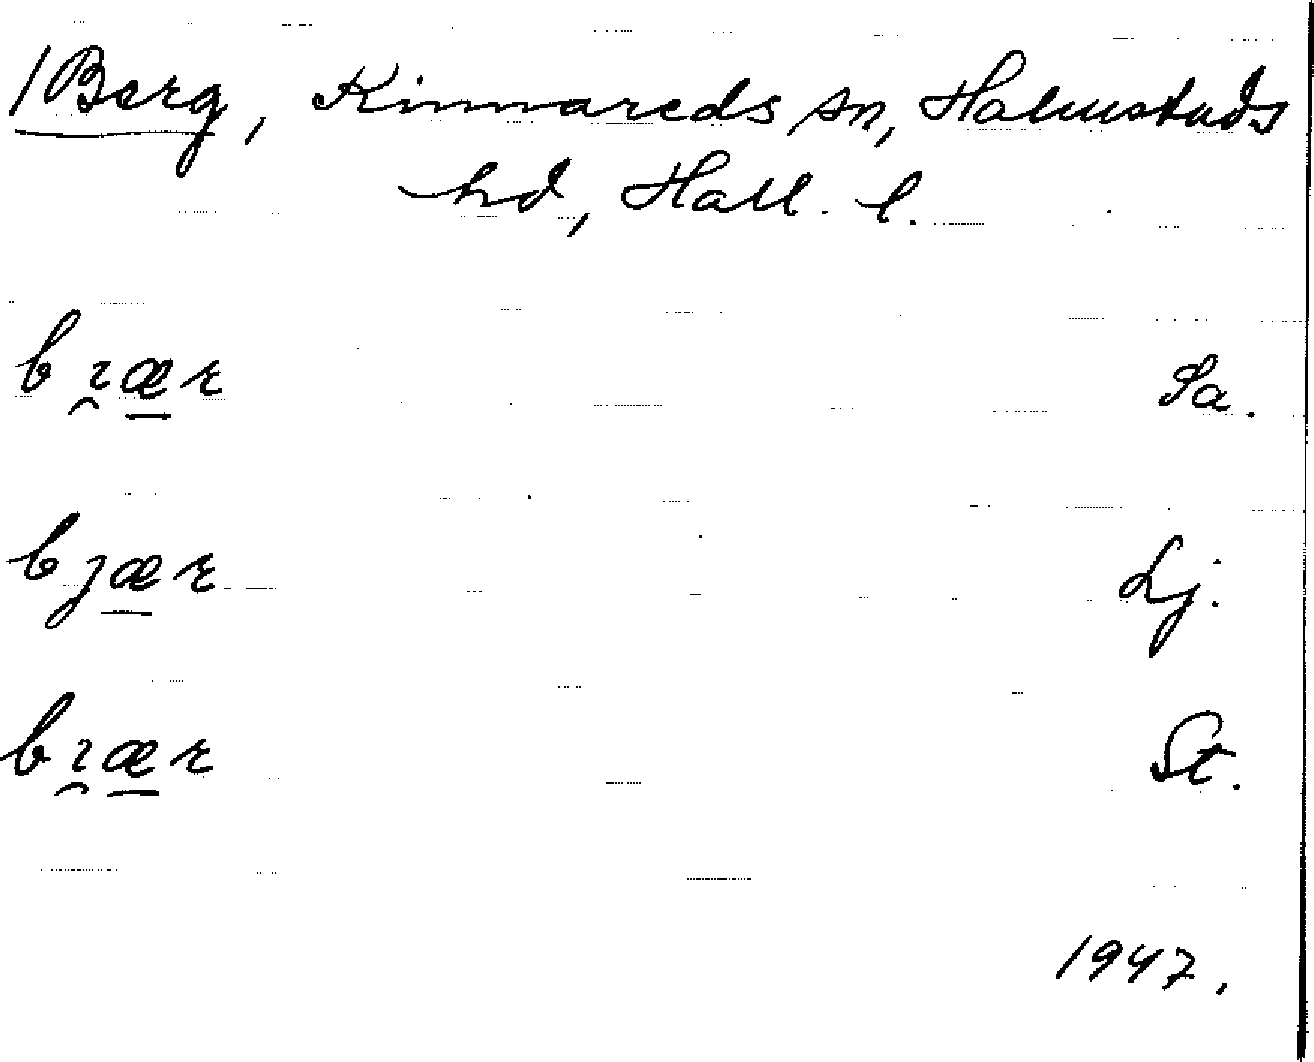 /Berg, Kinnareds sn, Halmstads
hd, Hall. l.
bı̯æ̱r Sa.
bjæ̱r Lj.
bı̯æ̱r St.
1947.